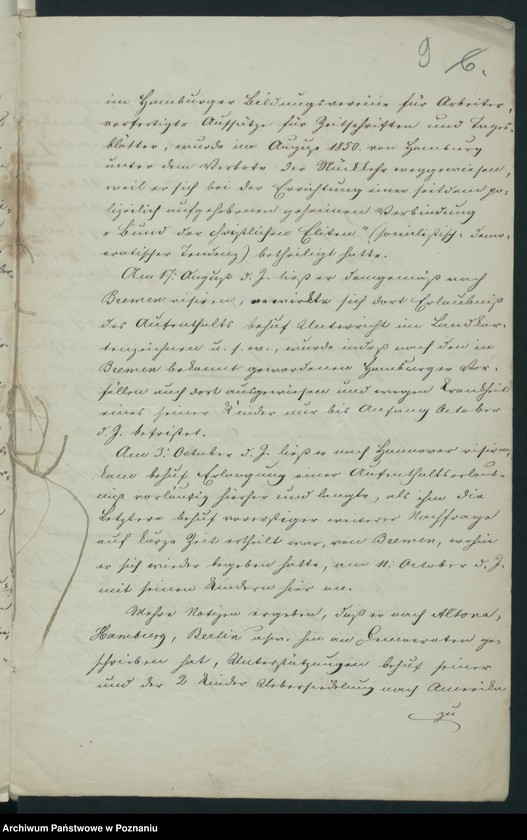 9 6.
im Hamburger Bildungsvereine für Arbeiter,
verfertigte Aufsätze für Zeitschriften und Tages-
blätter, wurde im August 1850 von Hamburg
unter dem Verbote der Rückkehr weggewiesen,
weil er sich bei der Errichtung einer seitdem po-
lizeilich aufgehobenen geheimen Verbindung
"Bund der christlichen Eliten" (socialistisch-demo-
cratischer Tendenz) betheiligt hatte.
Am 17. August d. J. ließ er demgemäß nach
Bremen visiren, erwirkte sich dort Erlaubniß
des Aufenthalts behuf Unterricht im Landkar-
tenzeichnen u. s. w., wurde indeß nach den in
Bremen bekannt gewordenen Hamburger Vor-
fällen auch dort ausgewiesen und wegen Krankheit
eines seiner Kinder nur bis Anfang October
d. J. befristet.
Am 3. October d. J. ließ er nach Hannover visiren,
kam behuf Erlangung einer Aufenthaltserlaub-
niß vorläufig hieher und langte, als ihm die
Letztere behuf vorerstiger weiterer Nachfrage
auf kurze Zeit ertheilt war, von Bremen, wohin
er sich wieder begeben hatte, am 11. October d. J.
mit seinen Kindern hier an.
Mehre Notizen ergeben, daß er nach Altona,
Hamburg, Berlin usw. hin an Democraten ge-
schrieben hat, Unterstützungen behuf seiner
und der 2 Kinder Uebersiedelung nach Amerika
zu
Archiwum Państwowe w Poznaniu